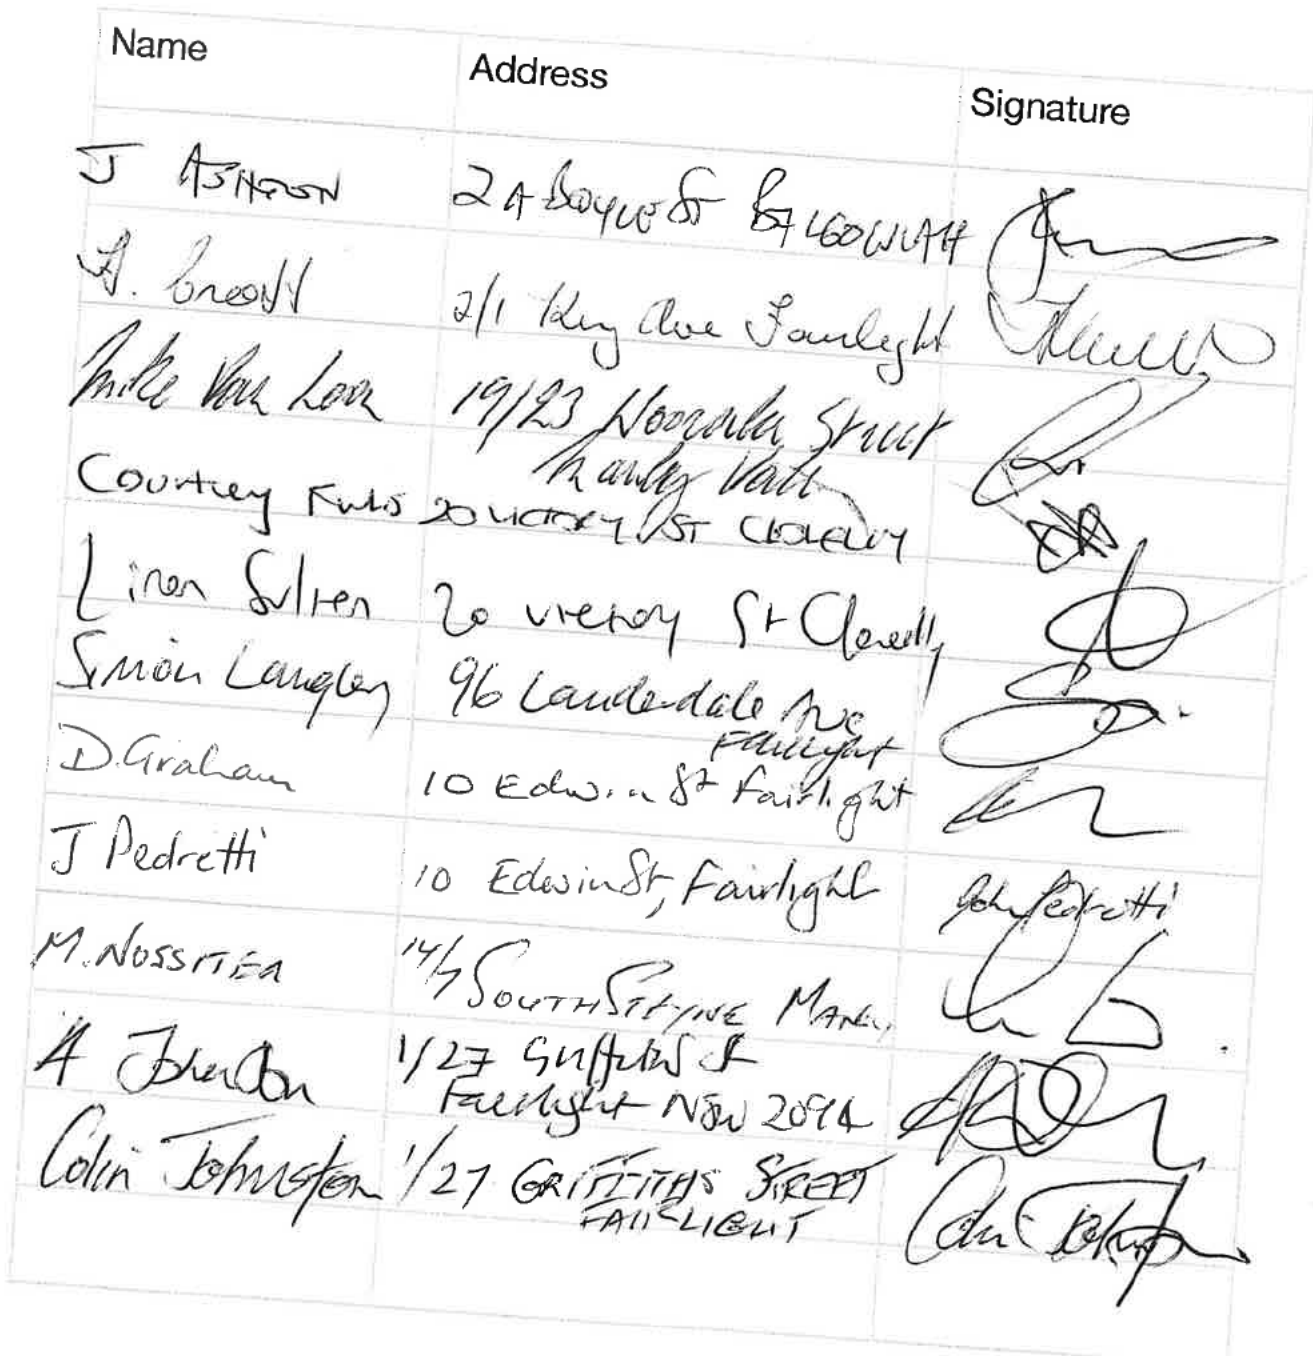 Name Address Signature
J ASHTON 2A BOYLE ST BALGOWLAH
2/1 King Ave Fairlight
Mike Van 19/23 Street
Manly Vale
Courtney 20 VICTORY ST CLOVELLY
Liron 20 victory St Clovelly
Simon Langley 96 Lauderdale Ave
Fairlight
D. Graham 10 Edwin St Fairlight
J Pedretti 10 Edwin St, Fairlight John Pedretti
M. NOSSITER 14/7 SOUTH STEYNE MANLY
A Johnston 1/27 Griffiths St
Fairlight NSW 2094
Colin Johnston 1/27 GRIFFITHS STREET
FAIRLIGHT